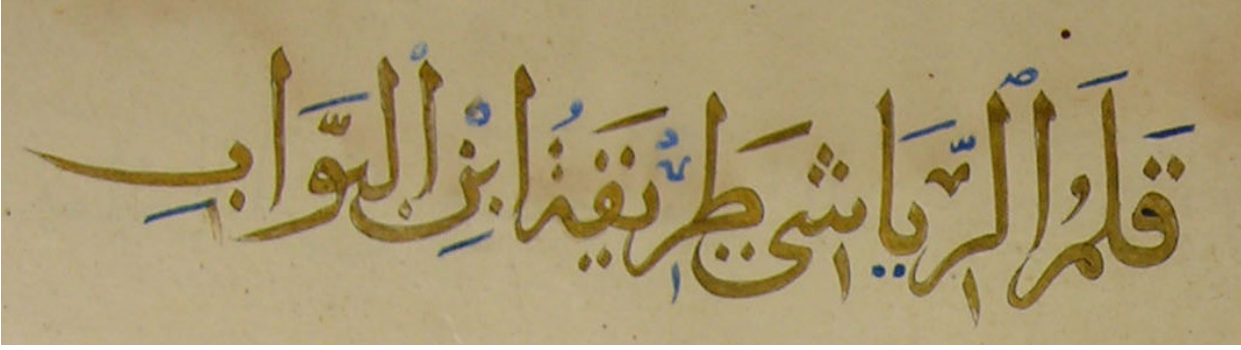 قَلَمُ ٱلرِّيَاشِى طَرِيقَةُ ابْنِ الْبَوَّابِ